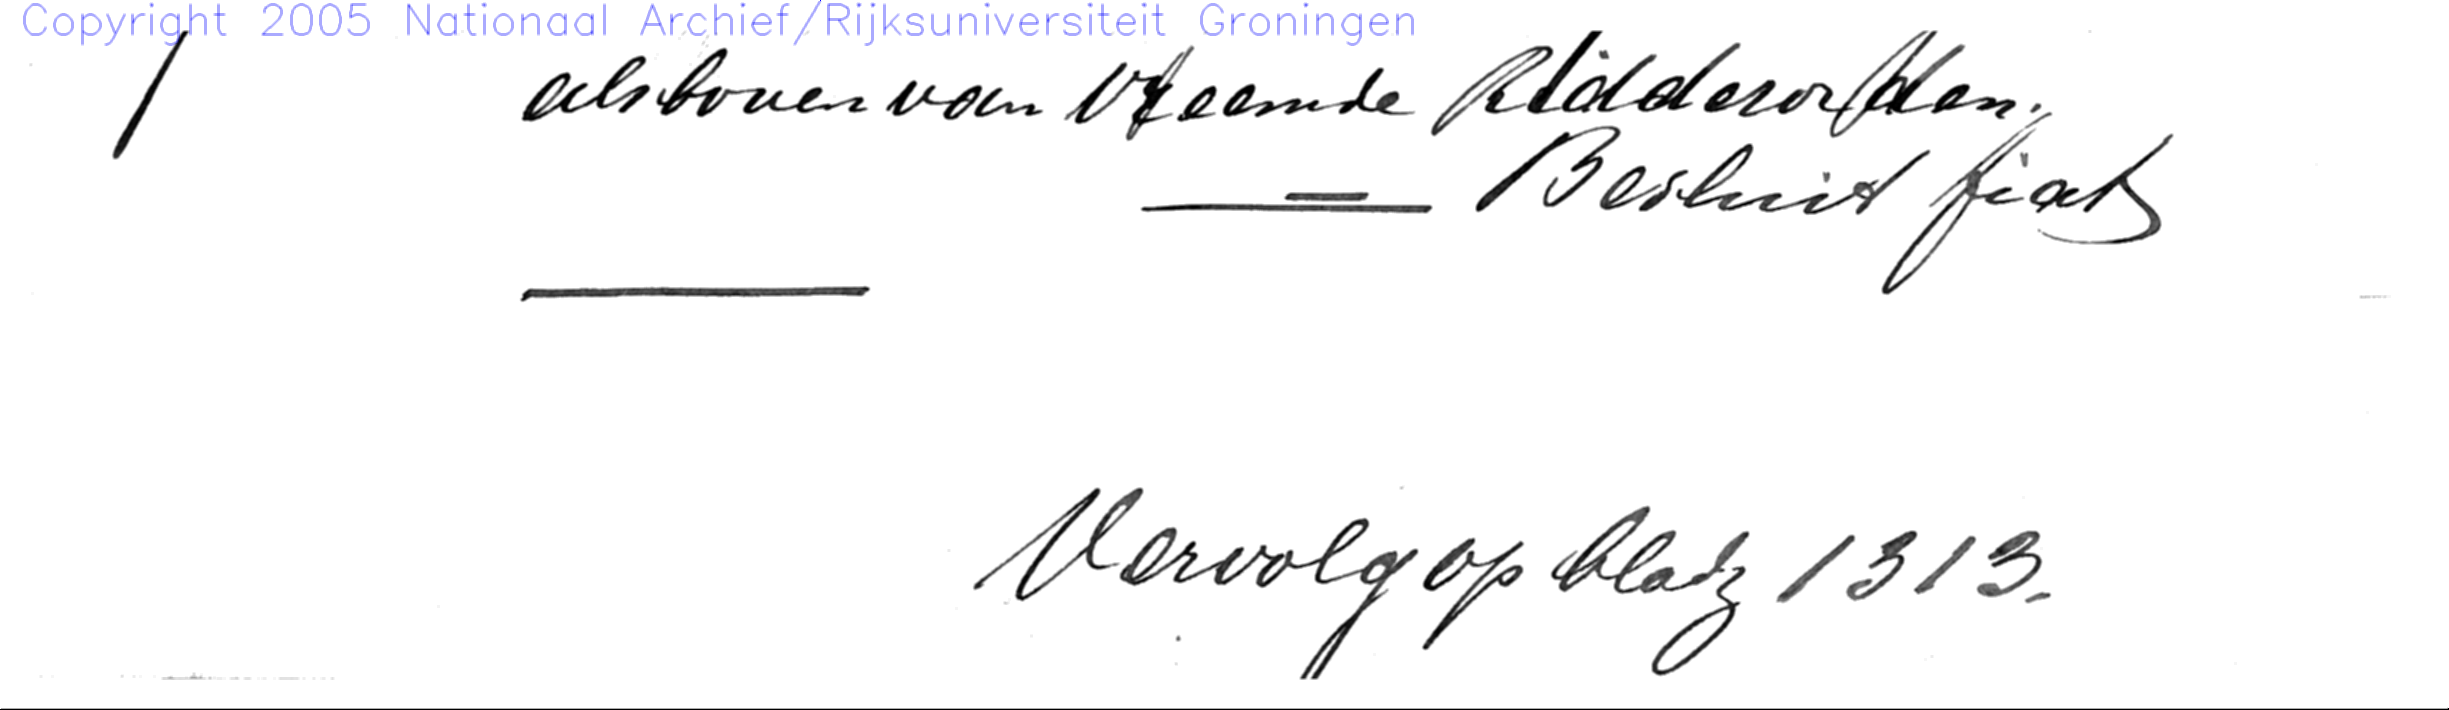 Copyright 2005 Nationaal Archief/Rijksuniversiteit Groningen
als boven van Vreemde Ridderorden.
Besluit fiat
Vervolg op bladz 1313.